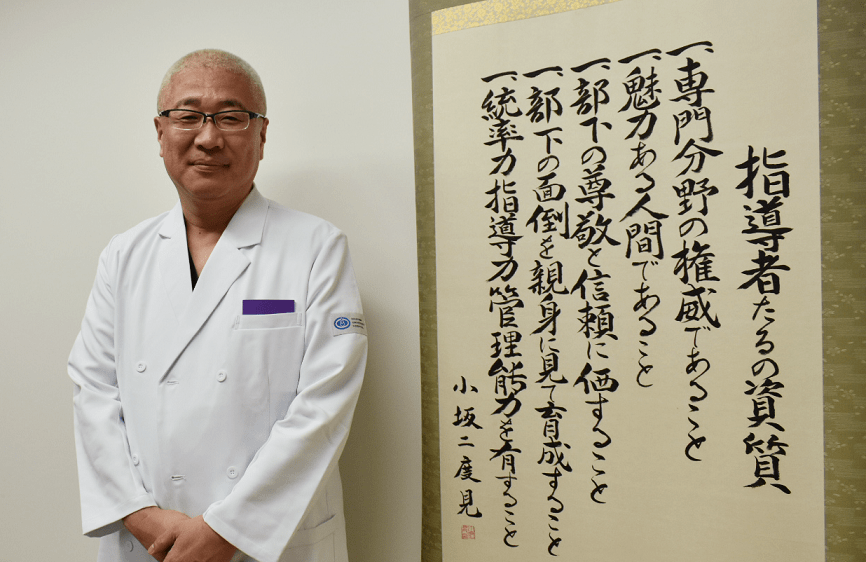 指導者たるの資質
一、専門分野の権威であること
一、魅力ある人間であること
一、部下の尊敬と信頼に価すること
一、部下の面倒を親身に見て育成すること
一、統率力指導力管理能力を有すること
小坂二度見